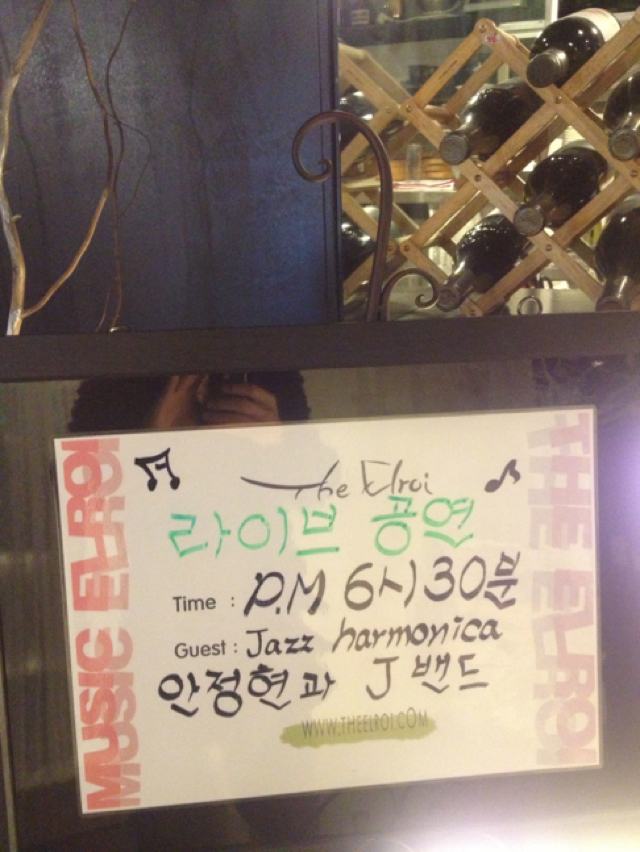 The Elroi
라이브 공연
Time : P.M 6시 30분
Guest : Jazz harmonica
안정현과 J 밴드
WWW.THEELROI.COM
MUSIC ELROI
THE ELROI